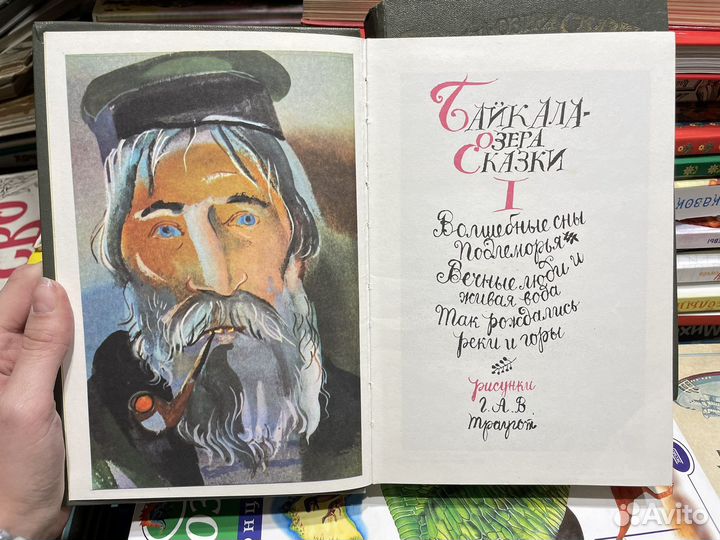 БАЙКАЛА-
ОЗЕРА
СКАЗКИ
I
Волшебные сны
Подлеморья
Вечные люди и
живая вода
Так рождались
реки и горы
рисунки
Г. А. В.
Траугот
Avito